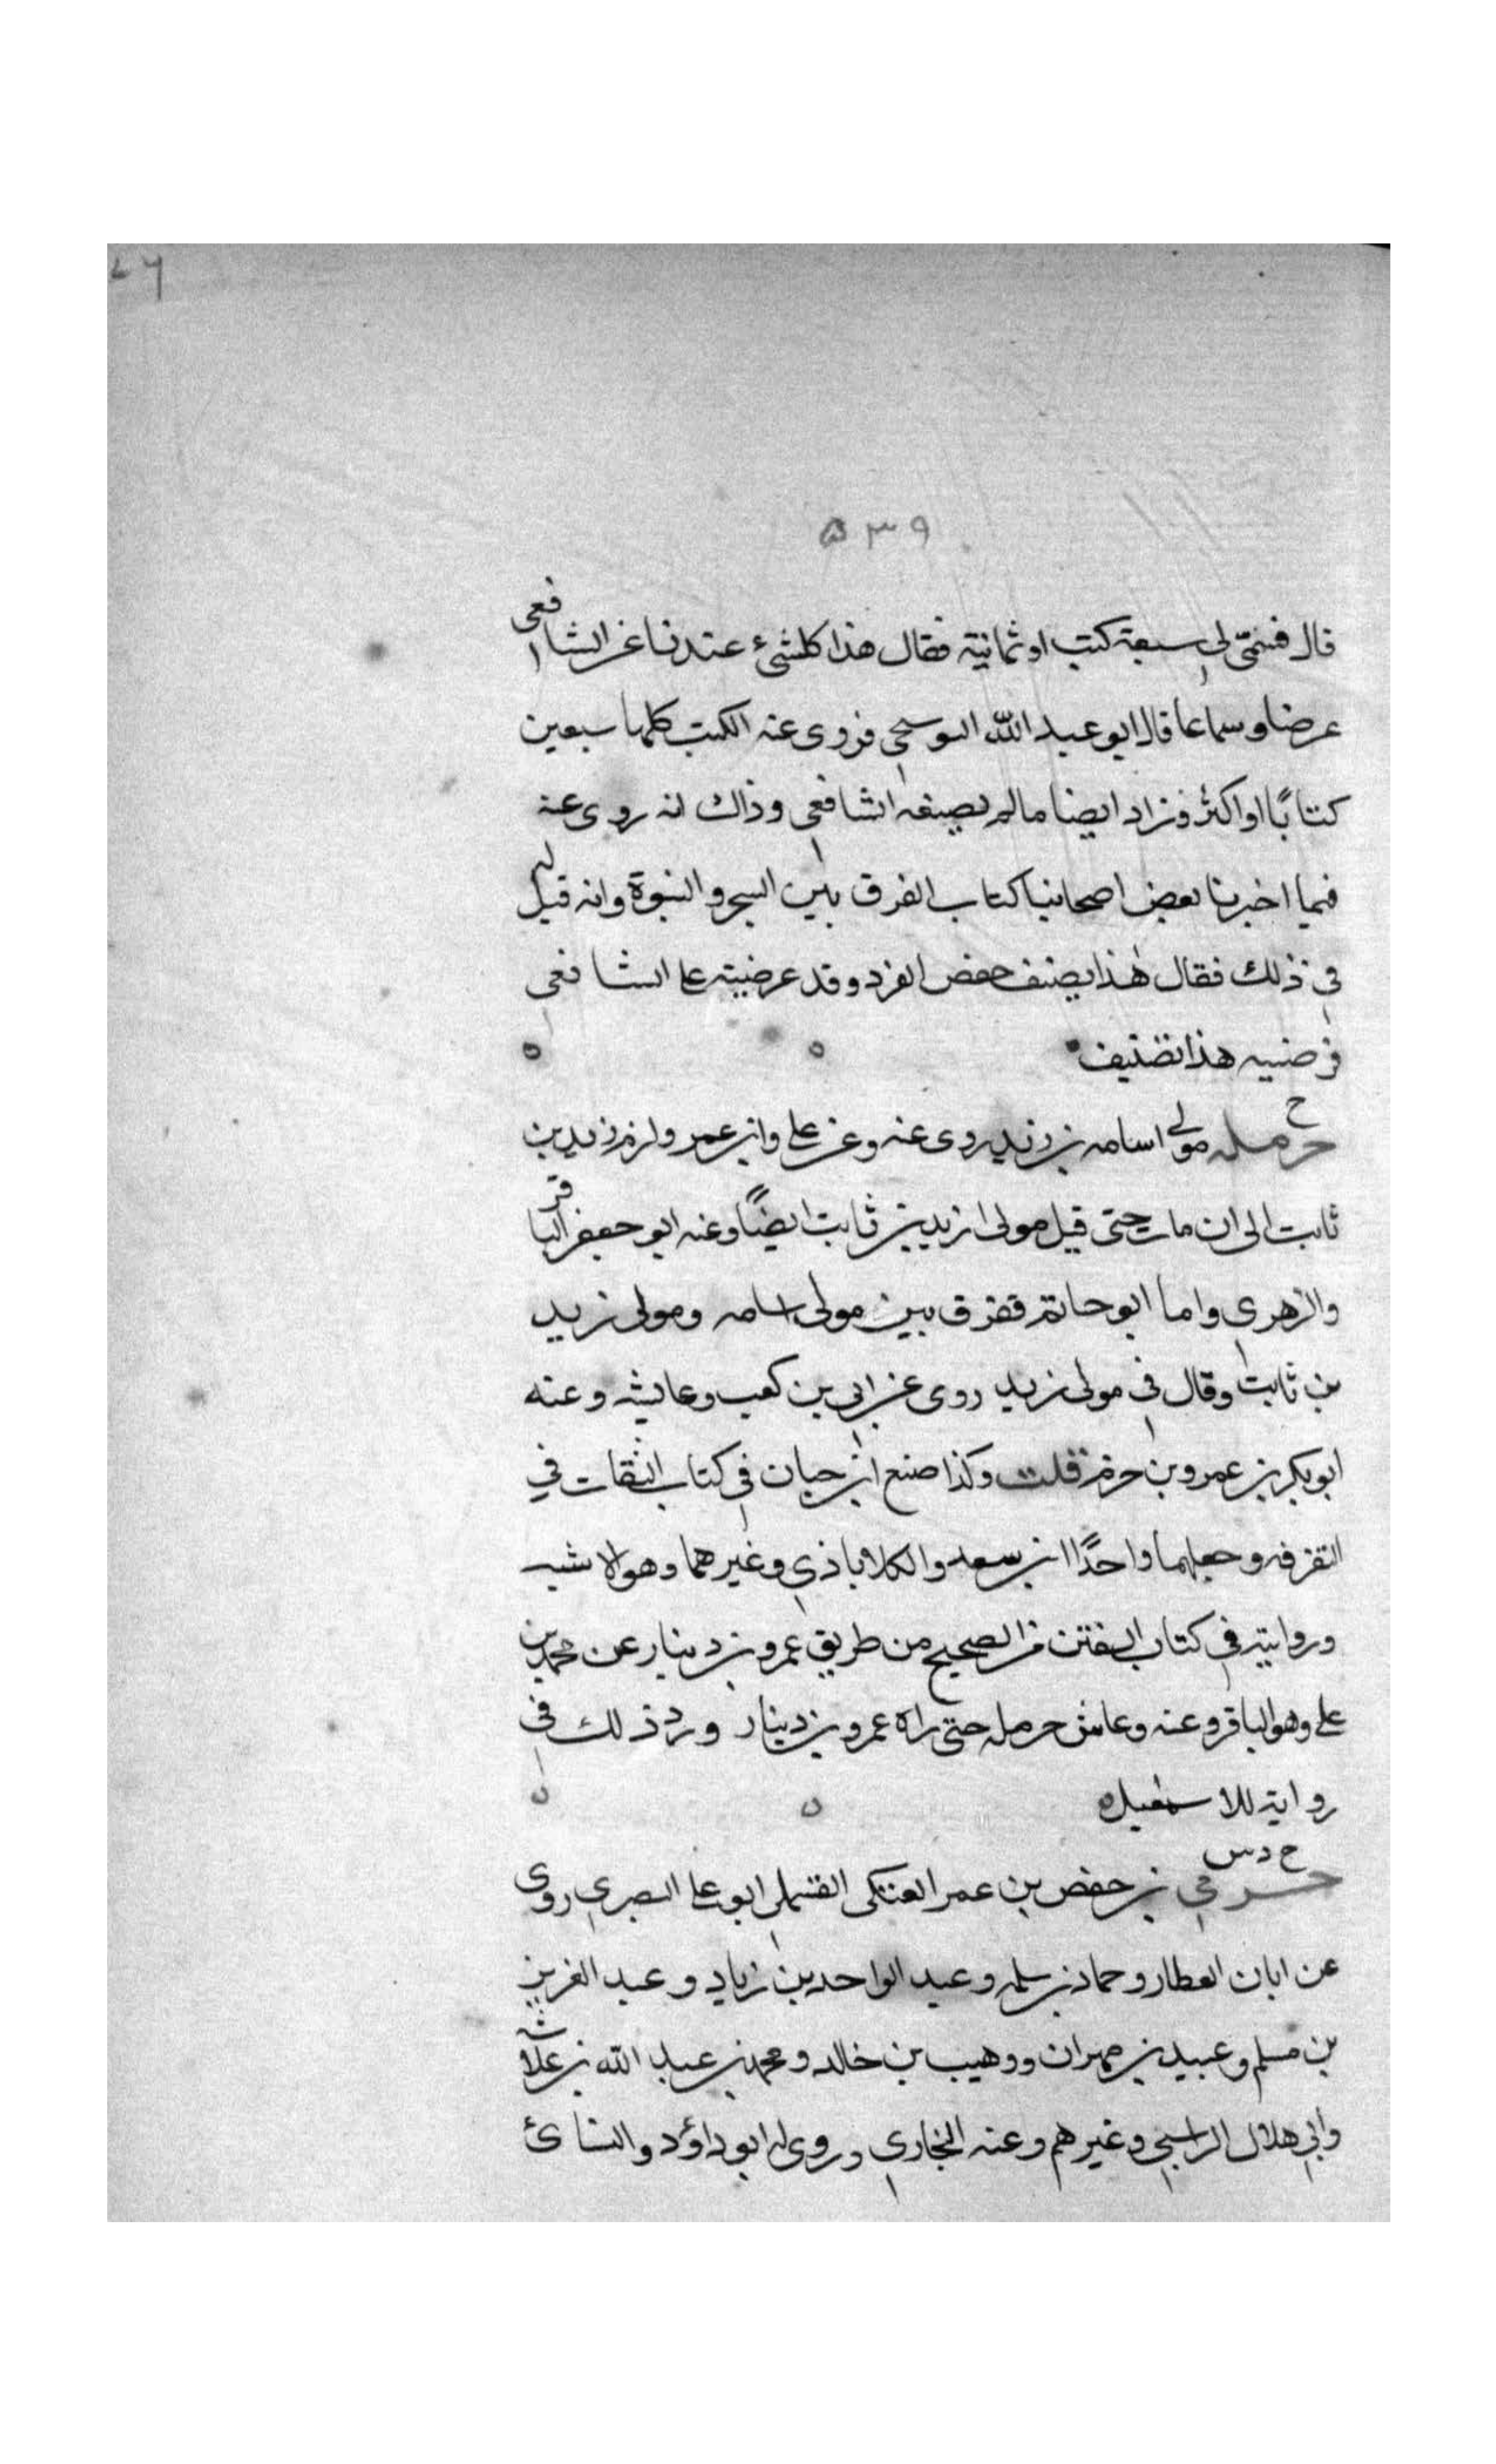 ٥٣٩
قال فسمى لي سبعة كتب او ثمانية فقال هذا كلشئ عندنا عن الشافعي
عرضا وسماعا قال ابو عبد الله البوسنجي فروى عنه الكتب كلها سبعين
كتابًا او اكثر فزاد ايضا مالم يصنفه الشافعي وذاك انه روى عنه
فيما اخبرنا بعض اصحابنا كتاب الفرق بين السحر والنبوة وانه قيل له
في ذلك فقال هذا يصنف حفص الفرد وقد عرضيته على الشافعي
فرضيه هذا تصنيف
ح
حرمله مولى اسامه بن زيد روى عنه وعن علي وابن عمر ولزم زيد بن
ثابت الى ان مات حتى قيل مولى زيد بن ثابت ايضًا وعنه ابو جعفر الباقر
والزهري واما ابو حاتم ففرق بين مولى اسامه ومولى زيد
بن ثابت وقال في مولى زيد روى عن ابي بن كعب وعايشه وعنه
ابو بكر بن عمرو بن حزم قلت وكذا صنع ابن حبان في كتاب الثقات في
التفرفه وجعلهما واحدًا ابن سعد والكلاباذي وغيرهما وهو الاشبه
وروايته في كتاب الفتن من الصحيح من طريق عمرو بن دينار عن محمد بن
علي وهو الباقر وعنه وعاش حرمله حتى راه عمرو بن دينار ورد ذلك في
رواية للاسمعيل
ح د س
حرمي بن حفص بن عمر العتكى القسملي ابو على البصري روى
عن ابان العطار وحماد بن سلمه وعبد الواحد بن زياد وعبد العزيز
بن مسلم وعبيد بن مهران ووهيب بن خالد ومحمد بن عبد الله بن علاثه
وابي هلال الراسبي وغيرهم وعنه البخاري وروى له ابو داؤد والنسائ